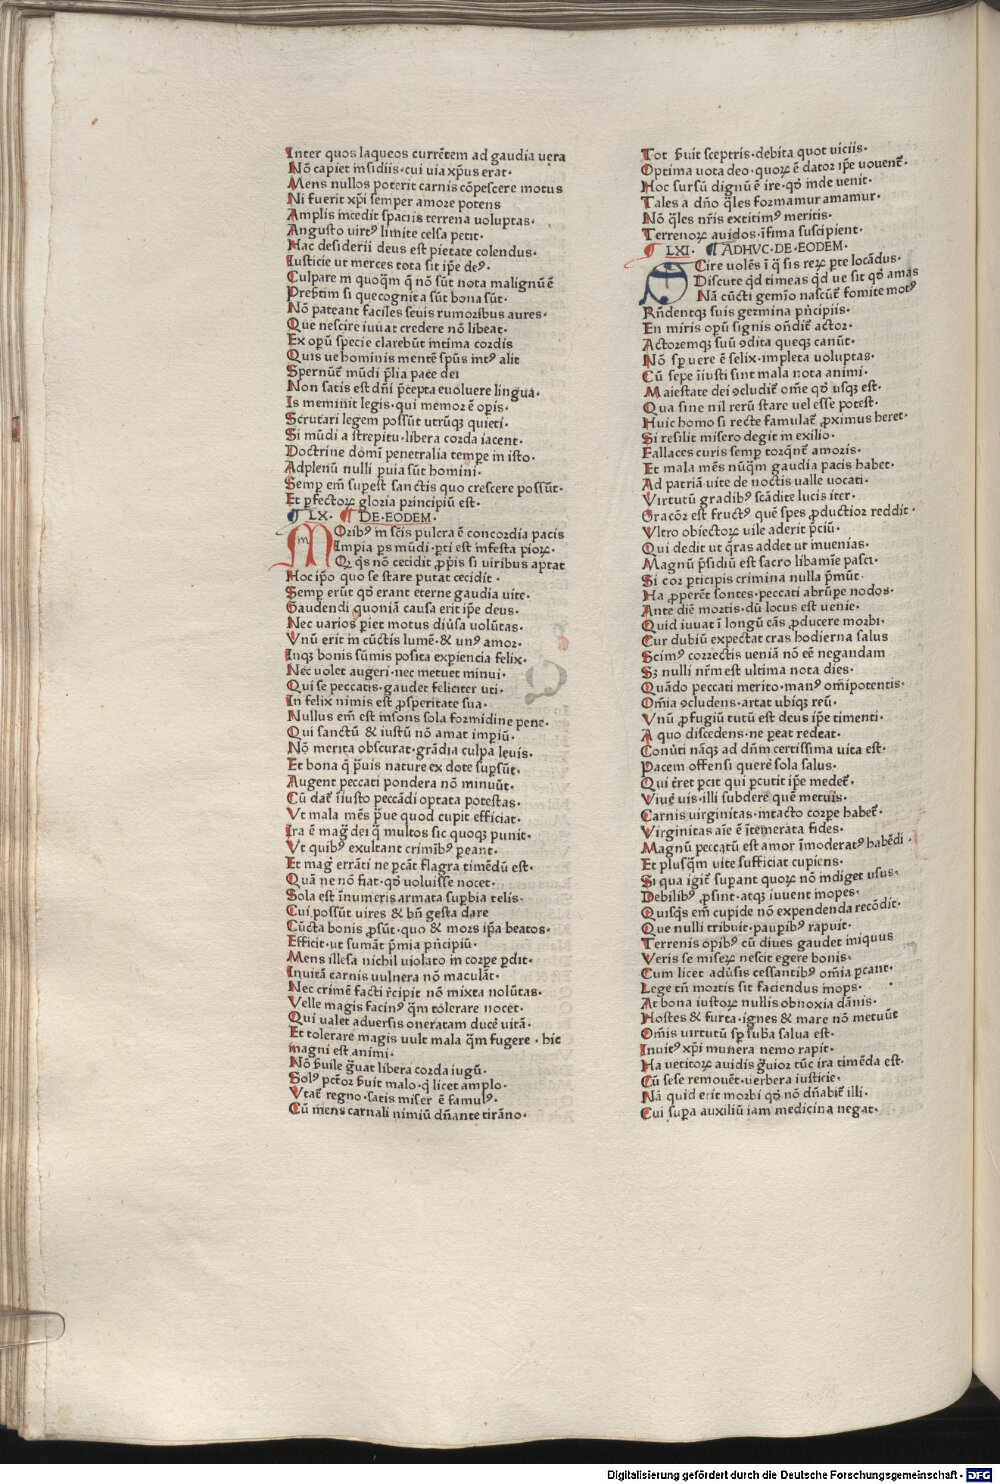 Inter quos laqueos currētem ad gaudia uera
Nō capiet insidiis·cui uia xp̄us erat·
Mens nullos poterit carnis cōpescere motus
Ni fuerit xp̄i semper amore potens
Amplis incedit spaciis terrena voluptas·
Angusto virtꝰ limite celsa petit·
Hac desiderii deus est pietate colendus·
Iusticie ut merces tota sit ip̄e deꝰ·
Culpare in quoqm̄ q̄ nō sūt nota malignū ē
Presītim si que cognita sūt bona sūt·
Nō pateant faciles seuis rumoribus aures·
Que nescire iuuat credere nō libeat·
Ex opū specie clarebūt intima cordis
Quis ue hominis mentē spūs intꝰ alit
Spernūt̄ mūdi p̄lia pace dei
Non satis est dn̄i p̄cepta euoluere lingua·
Is meminit legis·qui memor ē opis·
Scrutari legem possūt utrūqꝫ quieti·
Si mūdi a strepitu·libera corda iacent·
Doctrine domini penetralia tempe in isto·
Adplenū nulli puia sūt homini·
Semp em̄ supest sanctis quo crescere possūt·
Et pfectoꝝ gloria principiū est·
¶ LX· ¶ DE·EODEM·
MOribꝰ in scīs pulcra ē concordia pacis
Impia ps mūdi·pti est infesta pioꝝ·
Qꝛ q̄s nō cecidit ꝓpis si viribus aptat
Hoc ip̄o quo se stare putat cecidit·
Semp erūt qd̄ erant eterne gaudia uite·
Gaudendi quoniā causa erit ip̄e deus·
Nec varios piet motus diūsa volūtas·
Vnū erit in cūctis lumē·& unꝰ amor·
Inqꝫ bonis sūmis posita expiencia felix·
Nec volet augeri·nec metuet minui·
Qui se peccatis·gaudet feliciter uti·
In felix nimis est ꝓsperitate sua·
Nullus em̄ est insons sola formidine pene·
Qui sanctū & iustū nō amat impiū·
Nō merita obscurat·grādia culpa leuis·
Et bona q̄ p̄uis nature ex dote supsūt·
Augent peccati pondera nō minuūt·
Cū dat̄ iiusto peccādi optata potestas·
Vt mala mēs p̄ue quod cupit efficiat·
Ira ē maḡ dei q̄ multos sic quoqꝫ punit·
Vt quibꝰ exultant crimībꝰ peant·
Et maḡ errāti ne pcāt flagra timēdū est·
Quā ne nō fiat·qd̄ voluisse nocet·
Sola est īnumeris armata supbia telis·
Cui possūt uires & bn̄ gesta dare
Cūcta bonis ꝓsūt·quo & mors ip̄a beatos·
Efficit·ut sumāt p̄mia pn̄cipiū·
Mens illesa nichil violato in corpe pdit·
Inuitā carnis uulnera nō maculāt·
Nec crimē facti r̄cipit nō mixta nolūtas·
Velle magis facinꝰ q̄m tolerare nocet·
Qui ualet aduersis oneratam ducē uitā·
Et tolerare magis uult mala q̄m fugere·hic
magni est animi·
Nō s̄uile ḡuat libera corda iugū·
Solꝰ pct̄or s̄uit malo·q̄ licet amplo·
Vtat̄ regno·satis miser ē famulꝰ·
Cū mens carnali nimiū dn̄ante tirāno·
Tot s̄uit sceptris·debita quot uiciis·
Optima uota deo·quoꝝ ē dator ip̄e vouent̄·
Hoc sursū dignū ē ire·qd̄ inde uenit·
Tales a dn̄o q̄les formamur amamur·
Nō q̄les nr̄is extitimꝰ meritis·
Terrenoꝝ auidos·īfima suscipient·
¶ LXI· ¶ ADHVC·DE·EODEM·
SCire uolēs ī q̄ sis reꝝ pte locādus·
Discute q̄d timeas q̄d ue sit qd̄ amas
Nā cūcti gemīo nascūt̄ fomite motꝰ
Rn̄dentqꝫ suis germina pn̄cipiis·
En miris opū signis on̄dit̄ actor·
Actoremqꝫ suū ꝯdita queqꝫ canūt·
Nō sp uere ē felix·impleta uoluptas·
Cū sepe īiusti sint mala nota animi·
Maiestate dei ꝯcludit̄ om̄e qd̄ usqꝫ est·
Qua sine nil rerū stare uel esse potest·
Huic homo si recte famulat̄ ꝓximus heret·
Si resilit misero degit in exilio·
Fallaces curis semp torqn̄t amoris·
Et mala mēs nūq̄m gaudia pacis habet·
Ad patriā uite de noctis ualle uocati·
Virtutū gradibꝰ scādite lucis iter·
Gracōr est fructꝰ quē spes ꝓductior reddit·
Vltro obiectoꝝ uile aderit pciū·
Qui dedit ut q̄ras addet ut inuenias·
Magnū p̄sidiū est sacro libamīe pasci·
Si cor pticipis crimina nulla p̄mūt·
Ha ꝓperēt sontes·peccati abrūpe nodos·
Ante diē mortis·dū locus est uenie·
Quid iuuat ī longū cās ꝓducere morbi·
Cur dubiū expectat cras hodierna salus
Scimꝰ correctis ueniā nō eē negandam
Sꝫ nulli nr̄m est ultima nota dies·
Quādo peccati merito·manꝰ om̄ipotentis·
Om̄ia ꝯcludens·artat ubiqꝫ reū·
Vnū ꝓfugiū tutū est deus ip̄e timenti·
A quo discedens·ne peat redeat·
Conūti nāqꝫ ad dn̄m certissima uita est·
Pacem offensi querē sola salus·
Qui t̄ret pcit qui pcutit ip̄e medet̄·
Viuē uis·illi subdere quē metuis·
Carnis uirginitas·intacto corpe habet̄·
Virginitas aīe ē ītemerata fides·
Magnū peccatū est amor īmoderatꝰ habēdi·
Et plusq̄m uite sufficiat cupiens·
Si qua igit̄ supant quoꝝ nō indiget usus·
Debilibꝰ ꝓsint·atqꝫ iuuent inopes·
Quisq̄s em̄ cupide nō expendenda recōdit·
Que nulli tribuit·paupibꝰ rapuit·
Terrenis opibꝰ cū diues gaudet iniquus
Veris se miseꝝ nescit egere bonis·
Cum licet adūsis cessantibꝰ om̄ia pcant·
Lege tn̄ mortis sit faciendus inops·
At bona iustoꝝ nullis obnoxia dānis·
Hostes & furta·ignes & mare nō metuūt
Om̄is uirtutū sp suba salua est·
Inuitꝰ xp̄i munera nemo rapit·
Ha uetitoꝝ auidis ḡuior tūc ira timēda est·
Cū sese remouēt·uerbera iusticie·
Nā quid erit morbi qd̄ nō dn̄abit̄ illi·
Cui supa auxiliū iam medicina negat·
Digitalisierung gefördert durch die Deutsche Forschungsgemeinschaft - DFG